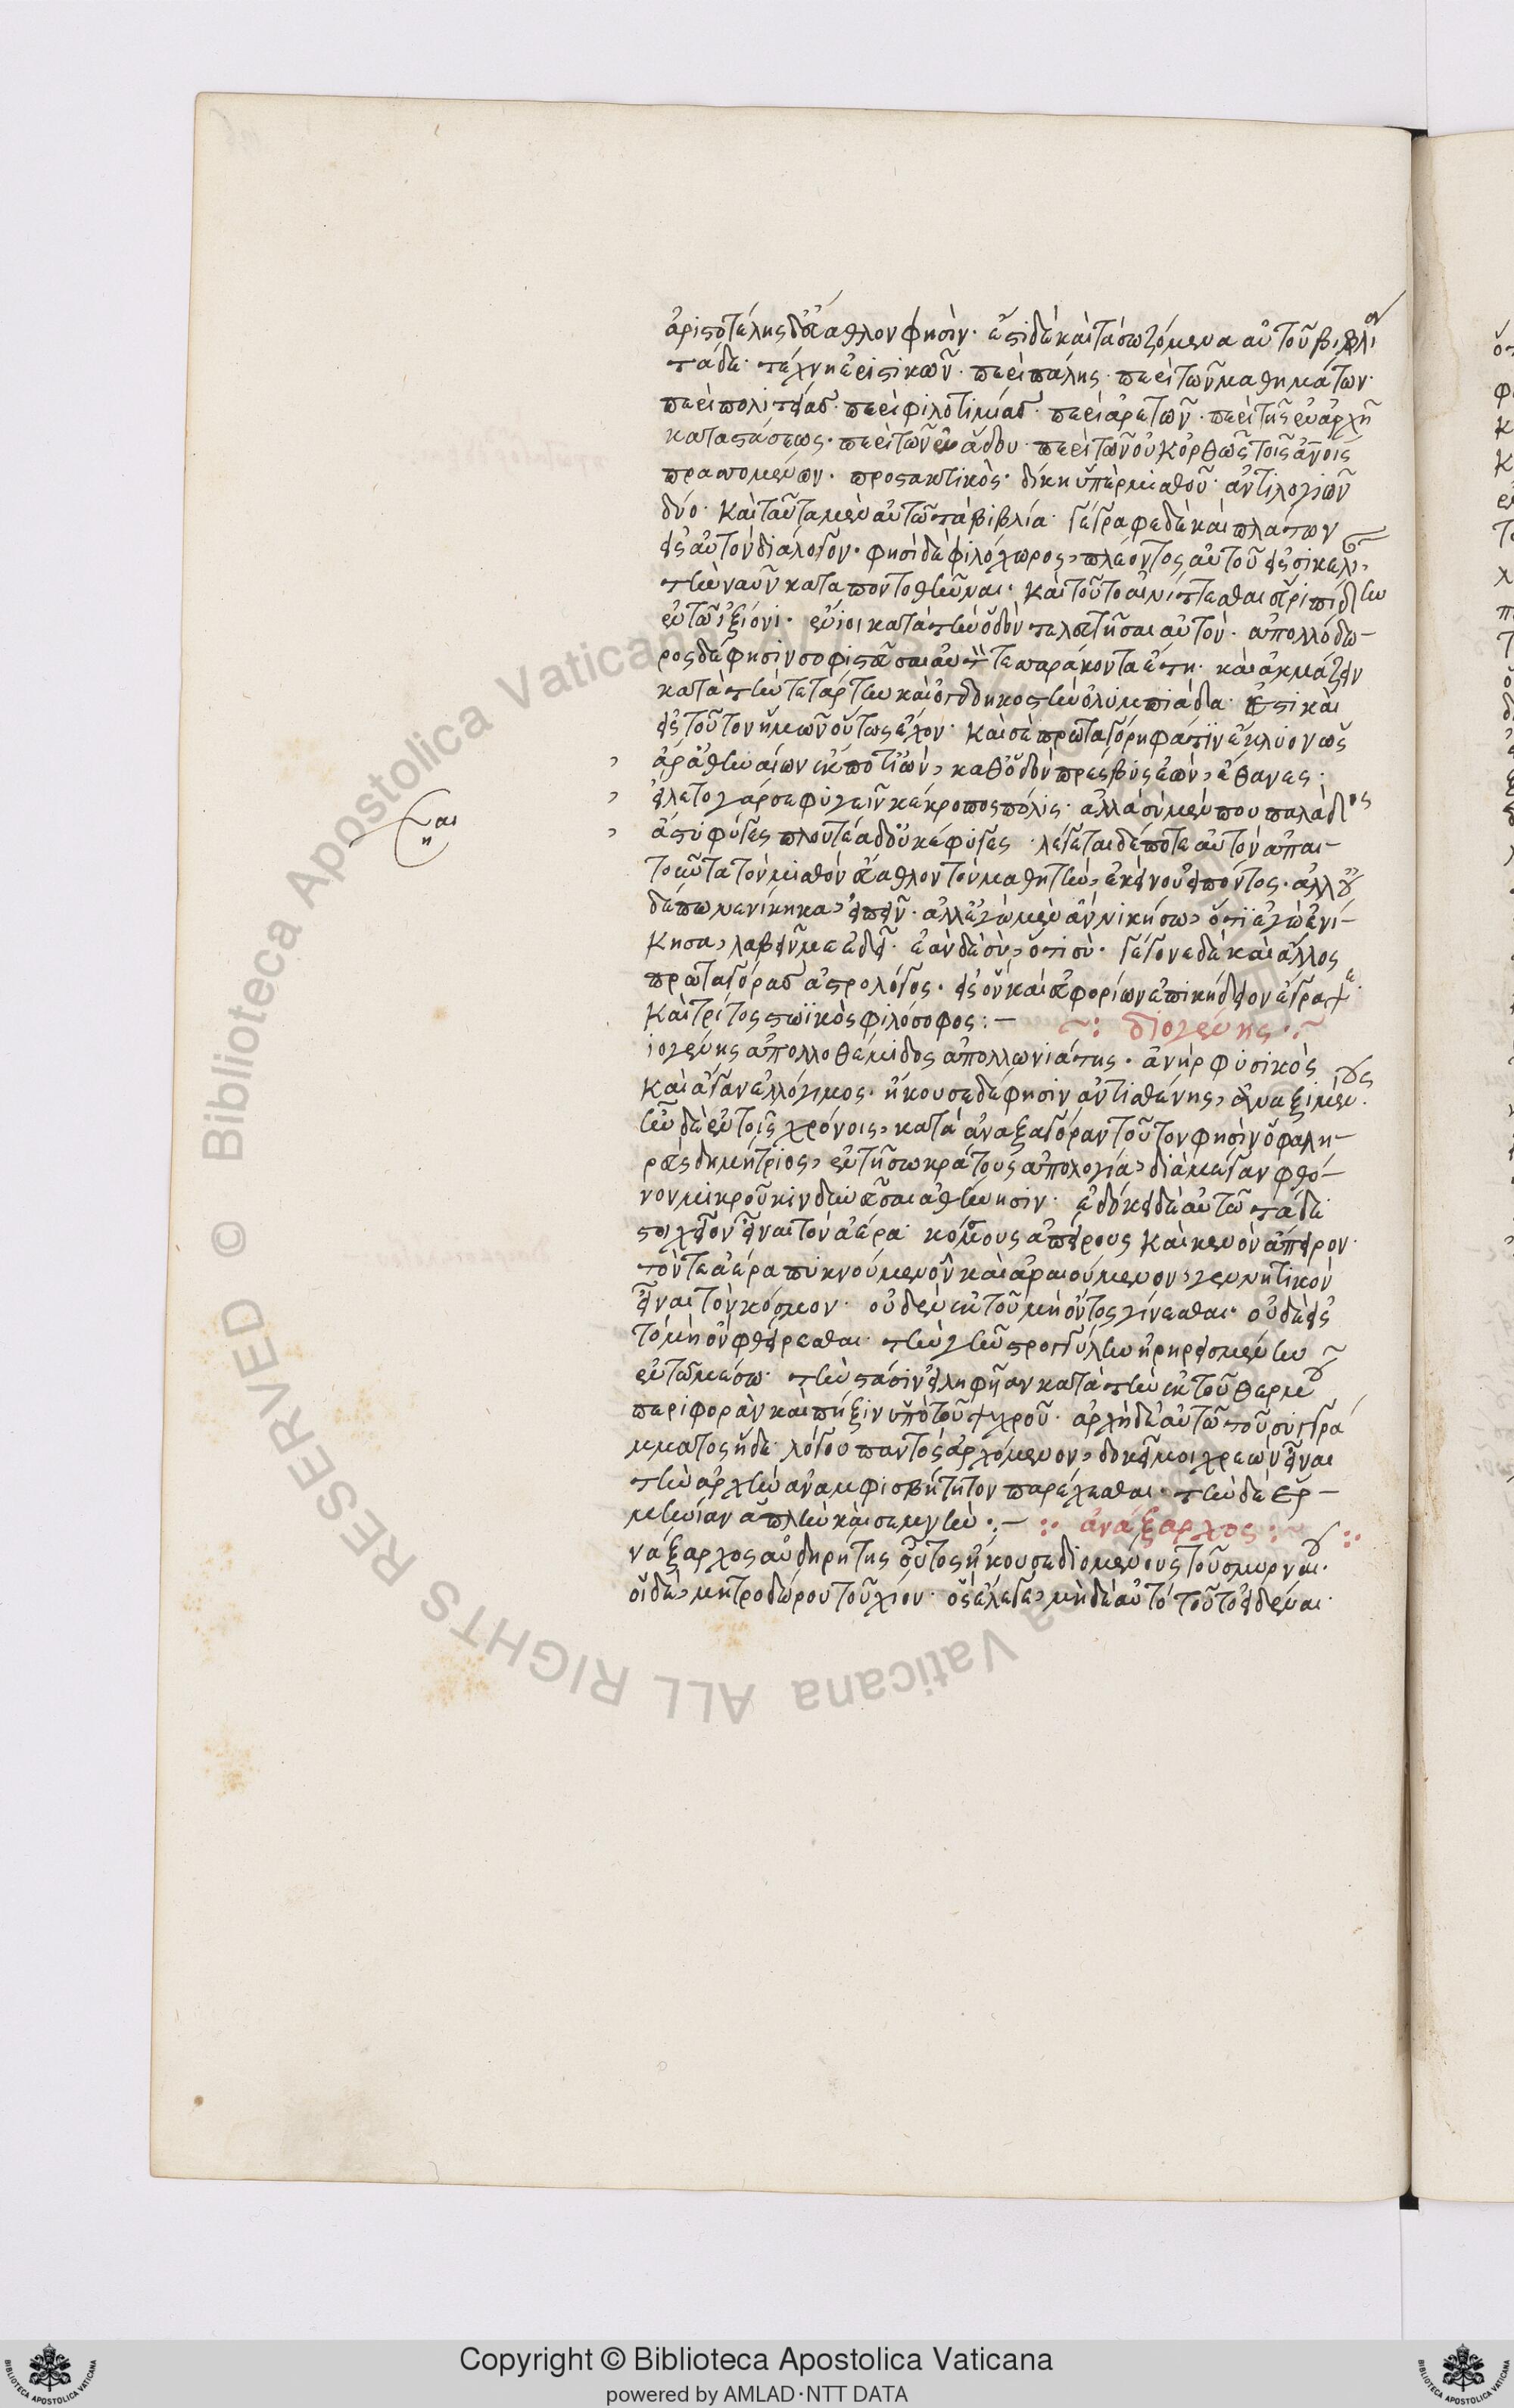 ἀριστοτέλης δ' εὔαθλον φησίν. ἔστι δὲ καὶ τὰ σωζόμενα αὐτοῦ βιβλία
τάδε. τέχνη ἐριστικῶν. περὶ πάλης. περὶ τῶν μαθημάτων.
περὶ πολιτείας. περὶ φιλοτιμίας. περὶ ἀρετῶν. περὶ τῆς ἐν ἀρχῇ
καταστάσεως. περὶ τῶν ἐν ἅδου. περὶ τῶν οὐκ ὀρθῶς τοῖς ἀνοις
πρασσομένων. προστακτικός. δίκη ὑπὲρ μισθοῦ. ἀντιλογιῶν
δύο. καὶ ταῦτα μὲν αὐτῶ τὰ βιβλία. γέγραφε δὲ καὶ πλάτων
εἰς αὐτὸν διάλογον. φησὶ δὲ φιλόχωρος, πλέοντος αὐτοῦ εἰς σικελίαν,
τὴν ναῦν καταποντωθῆναι. καὶ τοῦτο αἰνίττεσθαι εὐριπίδην
ἐν τῶ ἰξίονι. ἔνιοι κατὰ τὴν ὁδὸν τελευτῆσαι αὐτόν. ἀπολλόδω-
ρος δέ φησιν σοφιστεῦσαι αὐτὸν τεσσαράκοντα ἔτη. καὶ ἀκμάζειν
κατὰ τὴν τετάρτην καὶ ὀγδοηκοστὴν ὀλυμπιάδα. ἔστι καὶ
εἰς τοῦτον ἡμῶν οὕτως ἔχον. καὶ σεῦ πρωταγόρη φάτιν ἔκλυον ὡς
ἄρ' ἀθηναίων ἔκ ποτ' ἰὼν, καθ' ὁδὸν πρέσβυς ἐὼν, ἔθανες.
εἵλετο γάρ σε φυγεῖν κέκροπος πόλις. ἀλλὰ σὺ μέν που παλάδος
ἄστυ φύγες πλουτέα δ' οὐκ ἔφυγες. λέγεται δέ ποτε αὐτὸν ἀπαι-
τοῦντα τὸν μισθὸν εὔαθλον τὸν μαθητὴν, ἐκείνου εἰπόντος. ἀλλ' οὐ
δέπω νενίκηκα, εἰπεῖν. ἀλλ' ἐγὼ μὲν ἂν νικήσω, ὅτι ἐγὼ ἐνί-
κησα, λαβεῖν με ἔδει. ἐὰν δὲ σὺ, ὅτι σύ. γέγονε δὲ καὶ ἄλλος
πρωταγόρας ἀστρολόγος. εἰς ὃν καὶ εὐφορίων ἐπικήδειον ἔγραψε.
καὶ τρίτος στωϊκὸς φιλόσοφος:—
διογένης
ιογένης ἀπολλοθέμιδος ἀπολλωνιάτης. ἀνὴρ φυσικὸς
καὶ ἄγαν ἐλλόγιμος. ἤκουσε δέ φησιν ἀντισθένης, ἀναξιμένους.
ἦν δὲ ἐν τοῖς χρόνοις, κατὰ ἀναξαγόραν τοῦτον φησὶν ὁ φαλη-
ρεὺς δημήτριος, ἐν τῇ σωκράτους ἀπολογία, διὰ μέγαν φθό-
νον μικροῦ κινδυνεῦσαι ἀθήνησιν. ἐδόκει δὲ αὐτῶ τάδε
στοιχεῖον εἶναι τὸν ἀέρα. κόσμους ἀπείρους καὶ κενὸν ἄπειρον.
τόν τε ἀέρα πυκνούμενον καὶ ἀραιούμενον, γεννητικὸν
εἶναι τὸν κόσμον. οὐδὲν ἐκ τοῦ μὴ ὄντος γίνεσθαι. οὐδὲ εἰς
τὸ μὴ ὂν φθείρεσθαι. τὴν γῆν στρογγύλην ἠρηρεισμένην
ἐν τῶ μέσω. τὴν στάσιν εἰληφῆαν κατὰ τὴν ἐκ τοῦ θερμοῦ
περιφορὰν καὶ πῆξιν ὑπὸ τοῦ ψυχροῦ. ἀρχὴ δὲ αὐτῶ τοῦ συγγρά
μματος ἥδε. λόγου παντὸς ἀρχόμενον, δοκεῖ μοι χρεὼν εἶναι
τὴν ἀρχὴν ἀναμφισβήτητον παρέχεσθαι. τὴν δὲ ἑρ-
μηνίαν ἁπλὴν καὶ σεμνήν:—
ἀνάξαρχος
νάξαρχος αὐδηρίτης οὗτος ἤκουσε διομένους τοῦ σμυρναίου.
οἱ δὲ, μητροδώρου τοῦ χίου. ὃς ἔλεγε, μηδὲ αὐτὸ τοῦτο εἰδέναι.
Copyright © Biblioteca Apostolica Vaticana
powered by AMLAD·NTT DATA
© Biblioteca Apostolica Vaticana ALL RIGHTS RESERVED